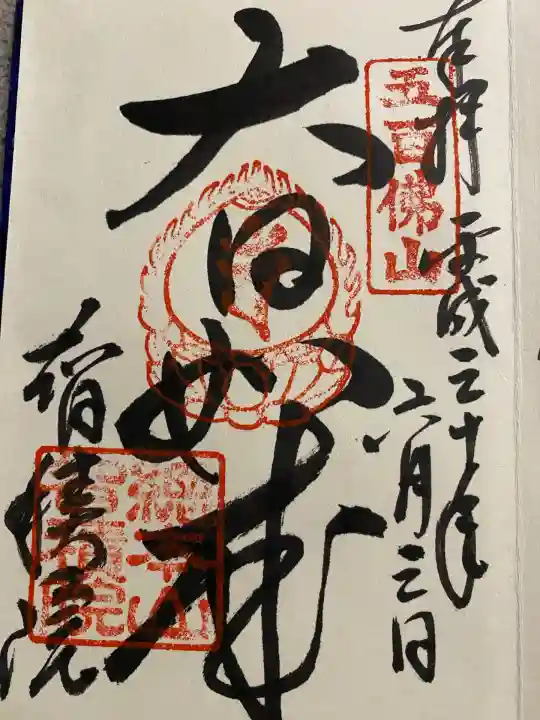 奉拝 平成三十年
六月三日
五百佛山
大日如来
智積院
總本山
智積院